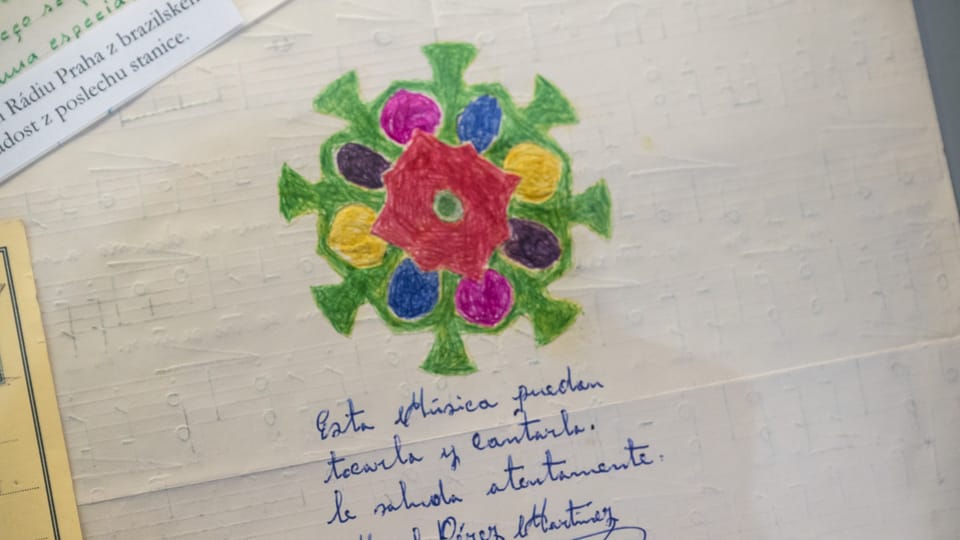 ego se
ma especia
Rádiu Praha z brazilské
dost z poslechu stanice.
Esta Música puedan
tocarla y cantarla.
le saluda atentamente.
Pérez Martínez